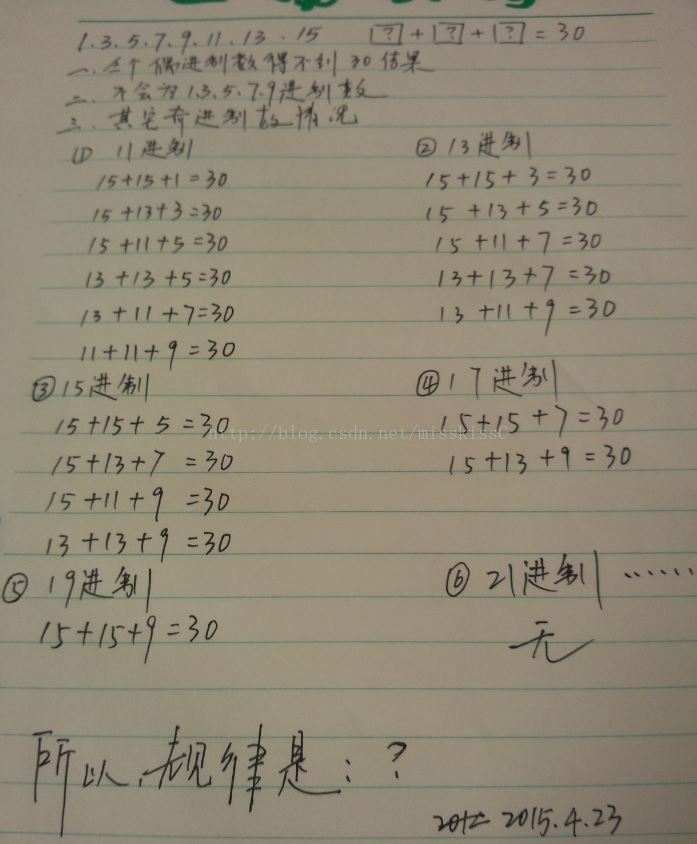 1.3.5.7.9.11.13.15 [?]+[?]+[?]=30
一.三个偶进制数得不到30结果
二.不会为1.3.5.7.9进制数
三.其它奇进制数情况
① 11进制
15+15+1=30
15+13+3=30
15+11+5=30
13+13+5=30
13+11+7=30
11+11+9=30
② 13进制
15+15+3=30
15+13+5=30
15+11+7=30
13+13+7=30
13+11+9=30
③ 15进制
15+15+5=30
15+13+7=30
15+11+9=30
13+13+9=30
④ 17进制
15+15+7=30
15+13+9=30
http://blog.csdn.net/misskissC
⑤ 19进制
15+15+9=30
⑥ 21进制 ......
无
所以,规律是:?
2015.4.23